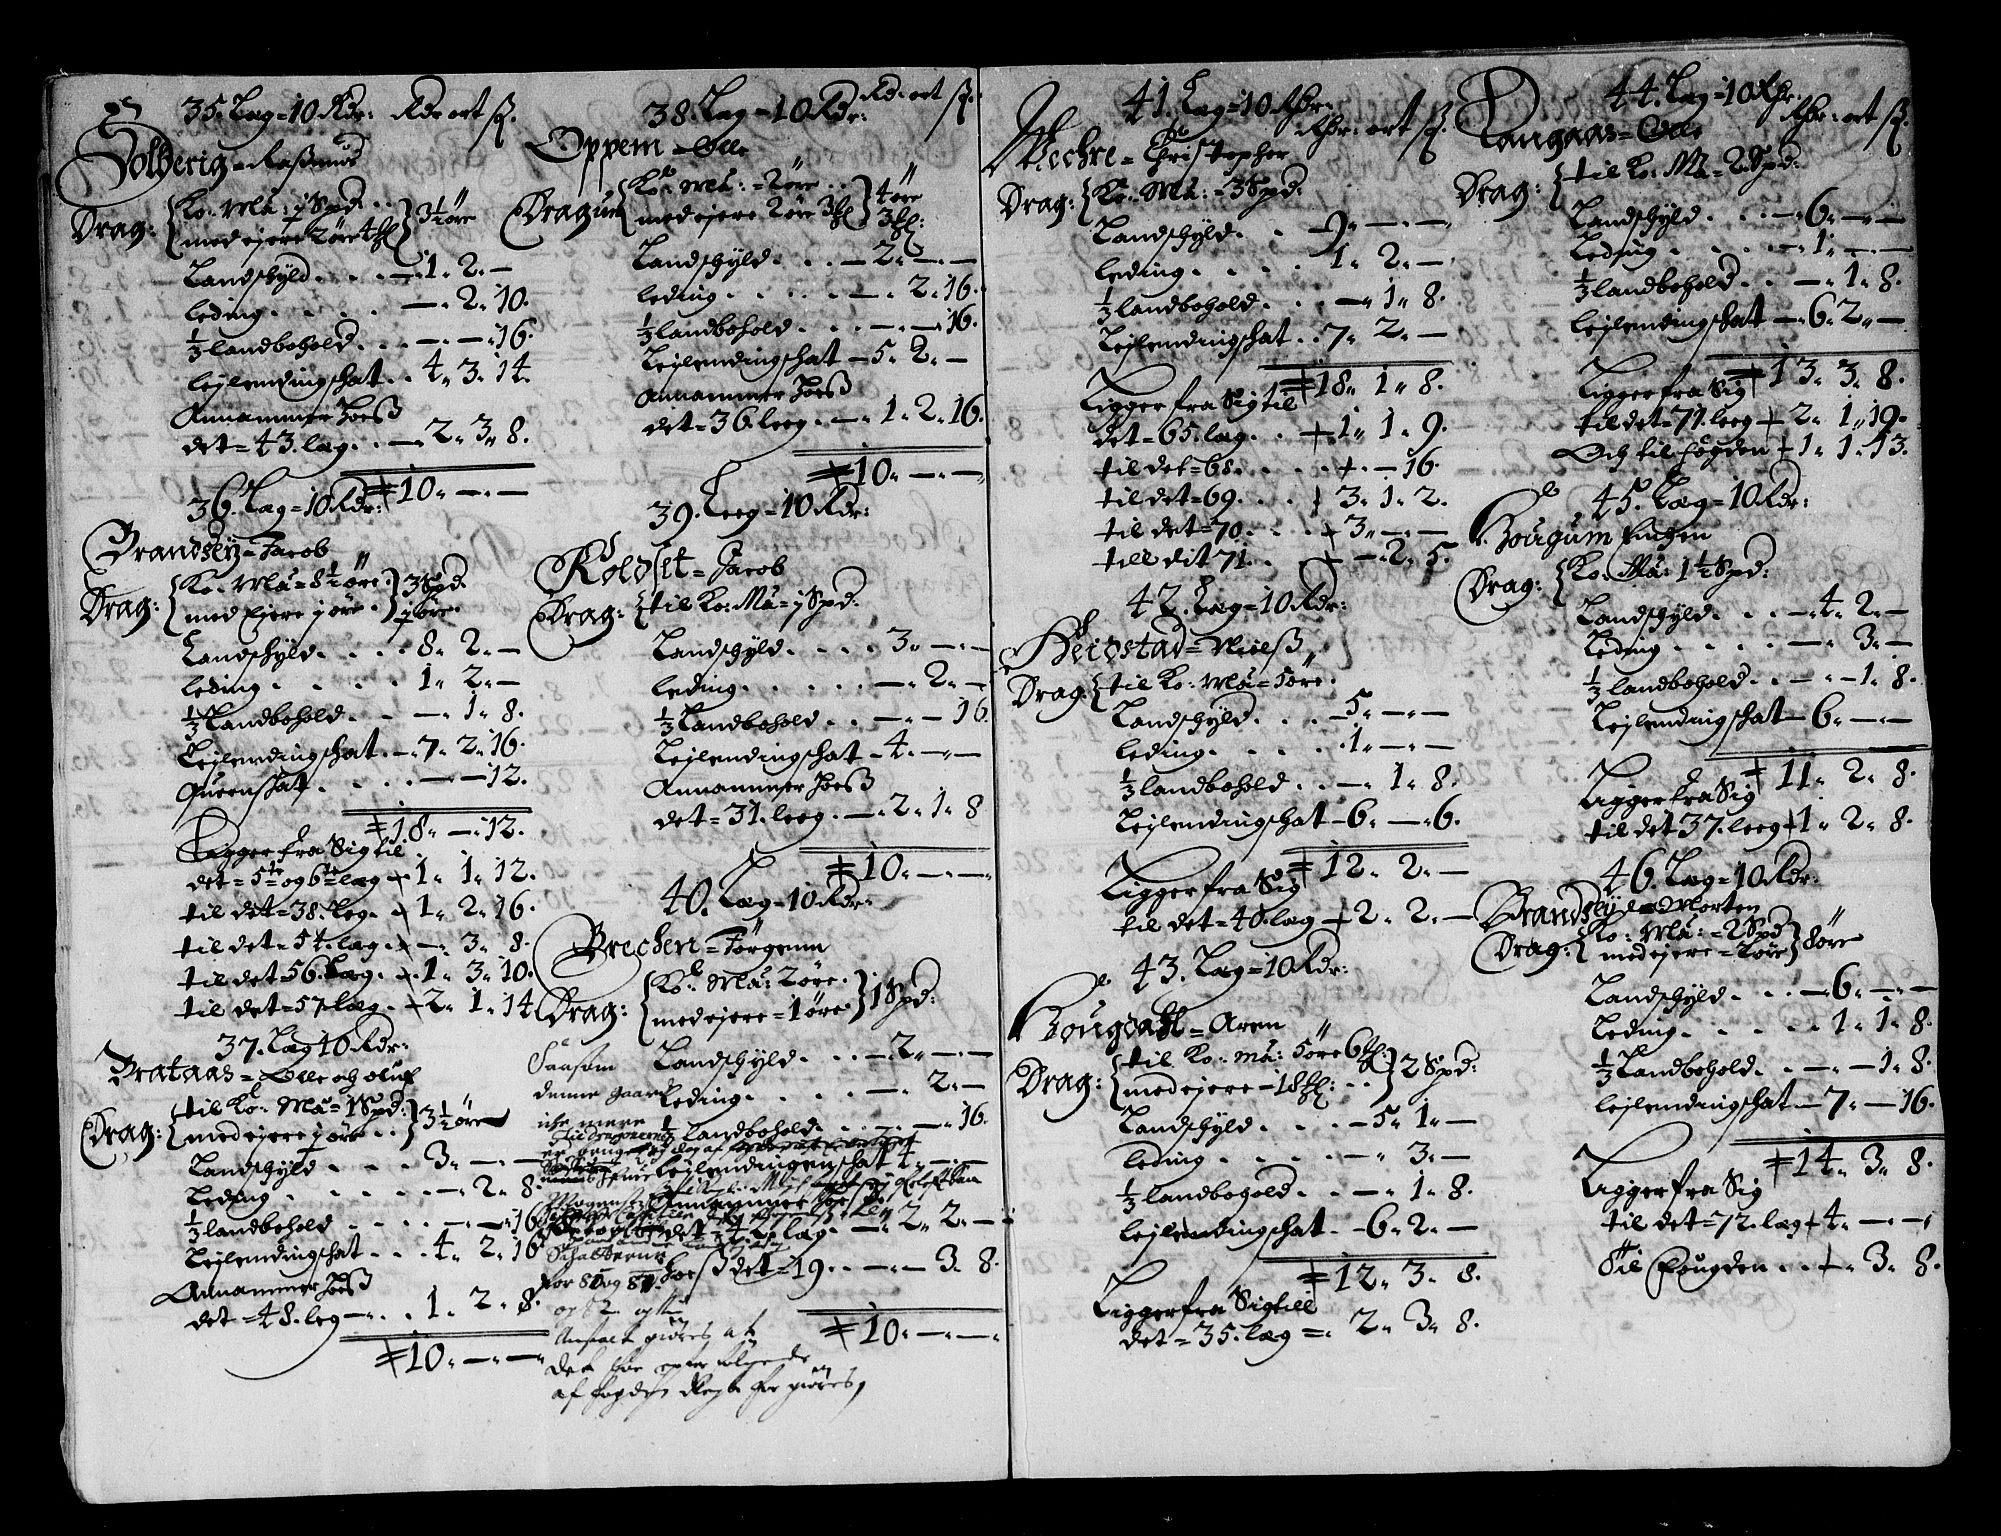 35. Læg = 10 Rdr: Rdr ort ß.
Solberig = Rasmus
Drag: Ko: Ma: j Spd: . .
med ejere 2 øre 4 sl
3½ øre
Landschyld . . . . — 1. 2. —
leding . . . . . — . 2. 10.
⅓ landbohold . . . — . — . 16.
lejlendingschat . . 4. 3. 14.
Annammer hoes
det = 43. læg . . — 2. 3. 8.
10. — . —
36. Læg = 10 Rdr:
Brandsey = Jacob
Drag: Ko: Ma = 8½ øre .
med Ejere j øre .
3 Spd.
j øre.
Landschyld . . . . 8. 2. —
leding . . . . . 1. 2. —
⅓ Landbohold . . — . 1. 8.
Lejlendingschat . — 7. 2. 16.
Queenschat . . . . — — 12.
18. — . 12.
Ligger fra Sig til
det = 5te og 6te læg + 1. 1. 12.
til det = 38. leg . + 1. 2. 16.
til det = 54. læg . + — . 3. 8.
til det 56. læg . + 1. 3. 10.
til det = 57. læg . + 2. 1. 14.
37. Læg 10 Rdr:
Brataas = Olle och oluf
Drag: til Ko: Ma = 1 Spd:
med ejere j øre . .
3½ øre
Landschyld . . . . 3. — . —
Leding . . . . . — . 2. 8.
⅓ landbohold . . . . — . — . 16.
Lejlendingschat . . . 4. 2. 16
Annammer hoes
det = 48. leg — . . 1. 2. 8.
10. — . —
38. Læg = 10 Rdr: Rd: ort ß.
Oppem = Olle
Drag Ko: Ma: = 2 øre . .
med ejere 2 øre 3 sl
4 øre
3 sl:
Landschyld . . . — 2. — . —
leding . . . . . — . 2. 16.
⅓ landbohold . . . — . — . 16.
Lejlendingschat — 5. 2. —
Annammer hoes
det = 36. leeg . — . 1. 2. 16.
10. — . —
39. Leeg = 10 Rdr:
Roldset = Jacob
Drag: til Ko: Ma = j Spd:
Landschyld . . . . 3. — . —
leding . . . . . — . 2. —
⅓ Landbohold . . — . — 16
Lejlendingschat — 4. — . —
Annammer hoes
det = 31. leeg . — 2. 1. 8
10. — . —
40. Læg = 10 Rdr:
Brechen = Jørgenn
Drag: Ko: Ma: 2 øre .
med ejere = 1 øre
1 Spd:
Saasom
denne gaard
iche mere
Landschyld . . . — 2. — . —
Leding . . . . . — . 2. —
⅓ Landbohold . . . — . — . 16.
lejlendingenschat 4. — . —
Annammer hoes
det = 42. læg . — . 2. 2. —
hoes det = 19 . . — . — 3. 8.
for 80 og 81
Anfalt giøres at
det for efter følgende
af fogden Regt for giøres
10. — . —
41. Læg = 10 Rdr: Rdr: ort ß.
Wechre = Christopher
Drag: Ko: Ma: = 3 Spd:
Landschyld . . — 9. — . —
leding . . . . . 1. 2. —
⅓ landbohold . . . — . 1. 8.
Lejlendingschat . . 7. 2. —
18. 1. 8.
Ligger fra Sig til
det = 65. læg . . + 1. 1. 9.
til det = 68. . . . + . — 16.
til det = 69 . . . + 3. 1. 2.
til det = 70 . . . + 3. — . —
till dit 71. . . . + — . 2. 5.
42. Læg = 10 Rdr:
Heidstad = Nielß
Drag: til Ko: Ma = 5 øre .
Landschyld . . . . 5. — . —
leding . . . . . . 1. — . —
⅓ landbohold . . . — . 1. 8.
Lejlendingschat — 6. — . 6.
12. 2. —
Ligger fra Sig
til det = 40. læg + 2. 2. —
43. Læg = 10 Rdr:
Hougdahl = Aren
Drag: til Ko: Ma: 5 øre 6 sl:
med ejere — 18 sl: . .
2 Spd:
Landschyld . . . . — 5. 1. —
leding . . . . . . — . 3. —
⅓ landbohold . . . — . 1. 8.
lejlendingschat — 6. 2. —
12. 3. 8.
Ligger fra Sig till
det = 35. læg = . 2. 3. 8.
44. Læg = 10 Rdr. Rdr: ort ß.
Langaas = Olle
Drag: til Ko: Ma = 2 Spd:
Landschyld . . . — . 6. — . —
Leding . . . . . — . 1. — . —
⅓ landbohold . . — . 1. 8.
lejlendingschat — . 6. 2. —
13. 3. 8.
Ligger fra Sig
til det = 71. leeg + 2. 1. 19.
Och til fogden + 1. 1. 13.
45. Læg = 10 Rdr:
Hougum Engen
Drag: Ko: Ma: 1½ Spd:
Landschyld . . . — . 4. 2. —
Leding . . . . . — . 3. —
⅓ landbohold . . — . — 1. 8.
Lejlendingschat — 6. — . —
11. 2. 8.
Ligger fra Sig
til det 37. leeg + 1. 2. 8.
46. Læg = 10 Rdr:
Brandsey = Morten
Drag: Ko: Ma: = 2 Spd
med ejere = 2 øre
8 øre
Landschyld . . . — 6. — . —
Leding . . . . . . 1. 1. 8.
⅓ Landbohold . . — . — 1. 8.
lejlendingschat — 7. — 16.
14. 3. 8.
Ligger fra Sig
til det = 72. læg + 4. — . —
Til Fougden . . + . 3. 8.